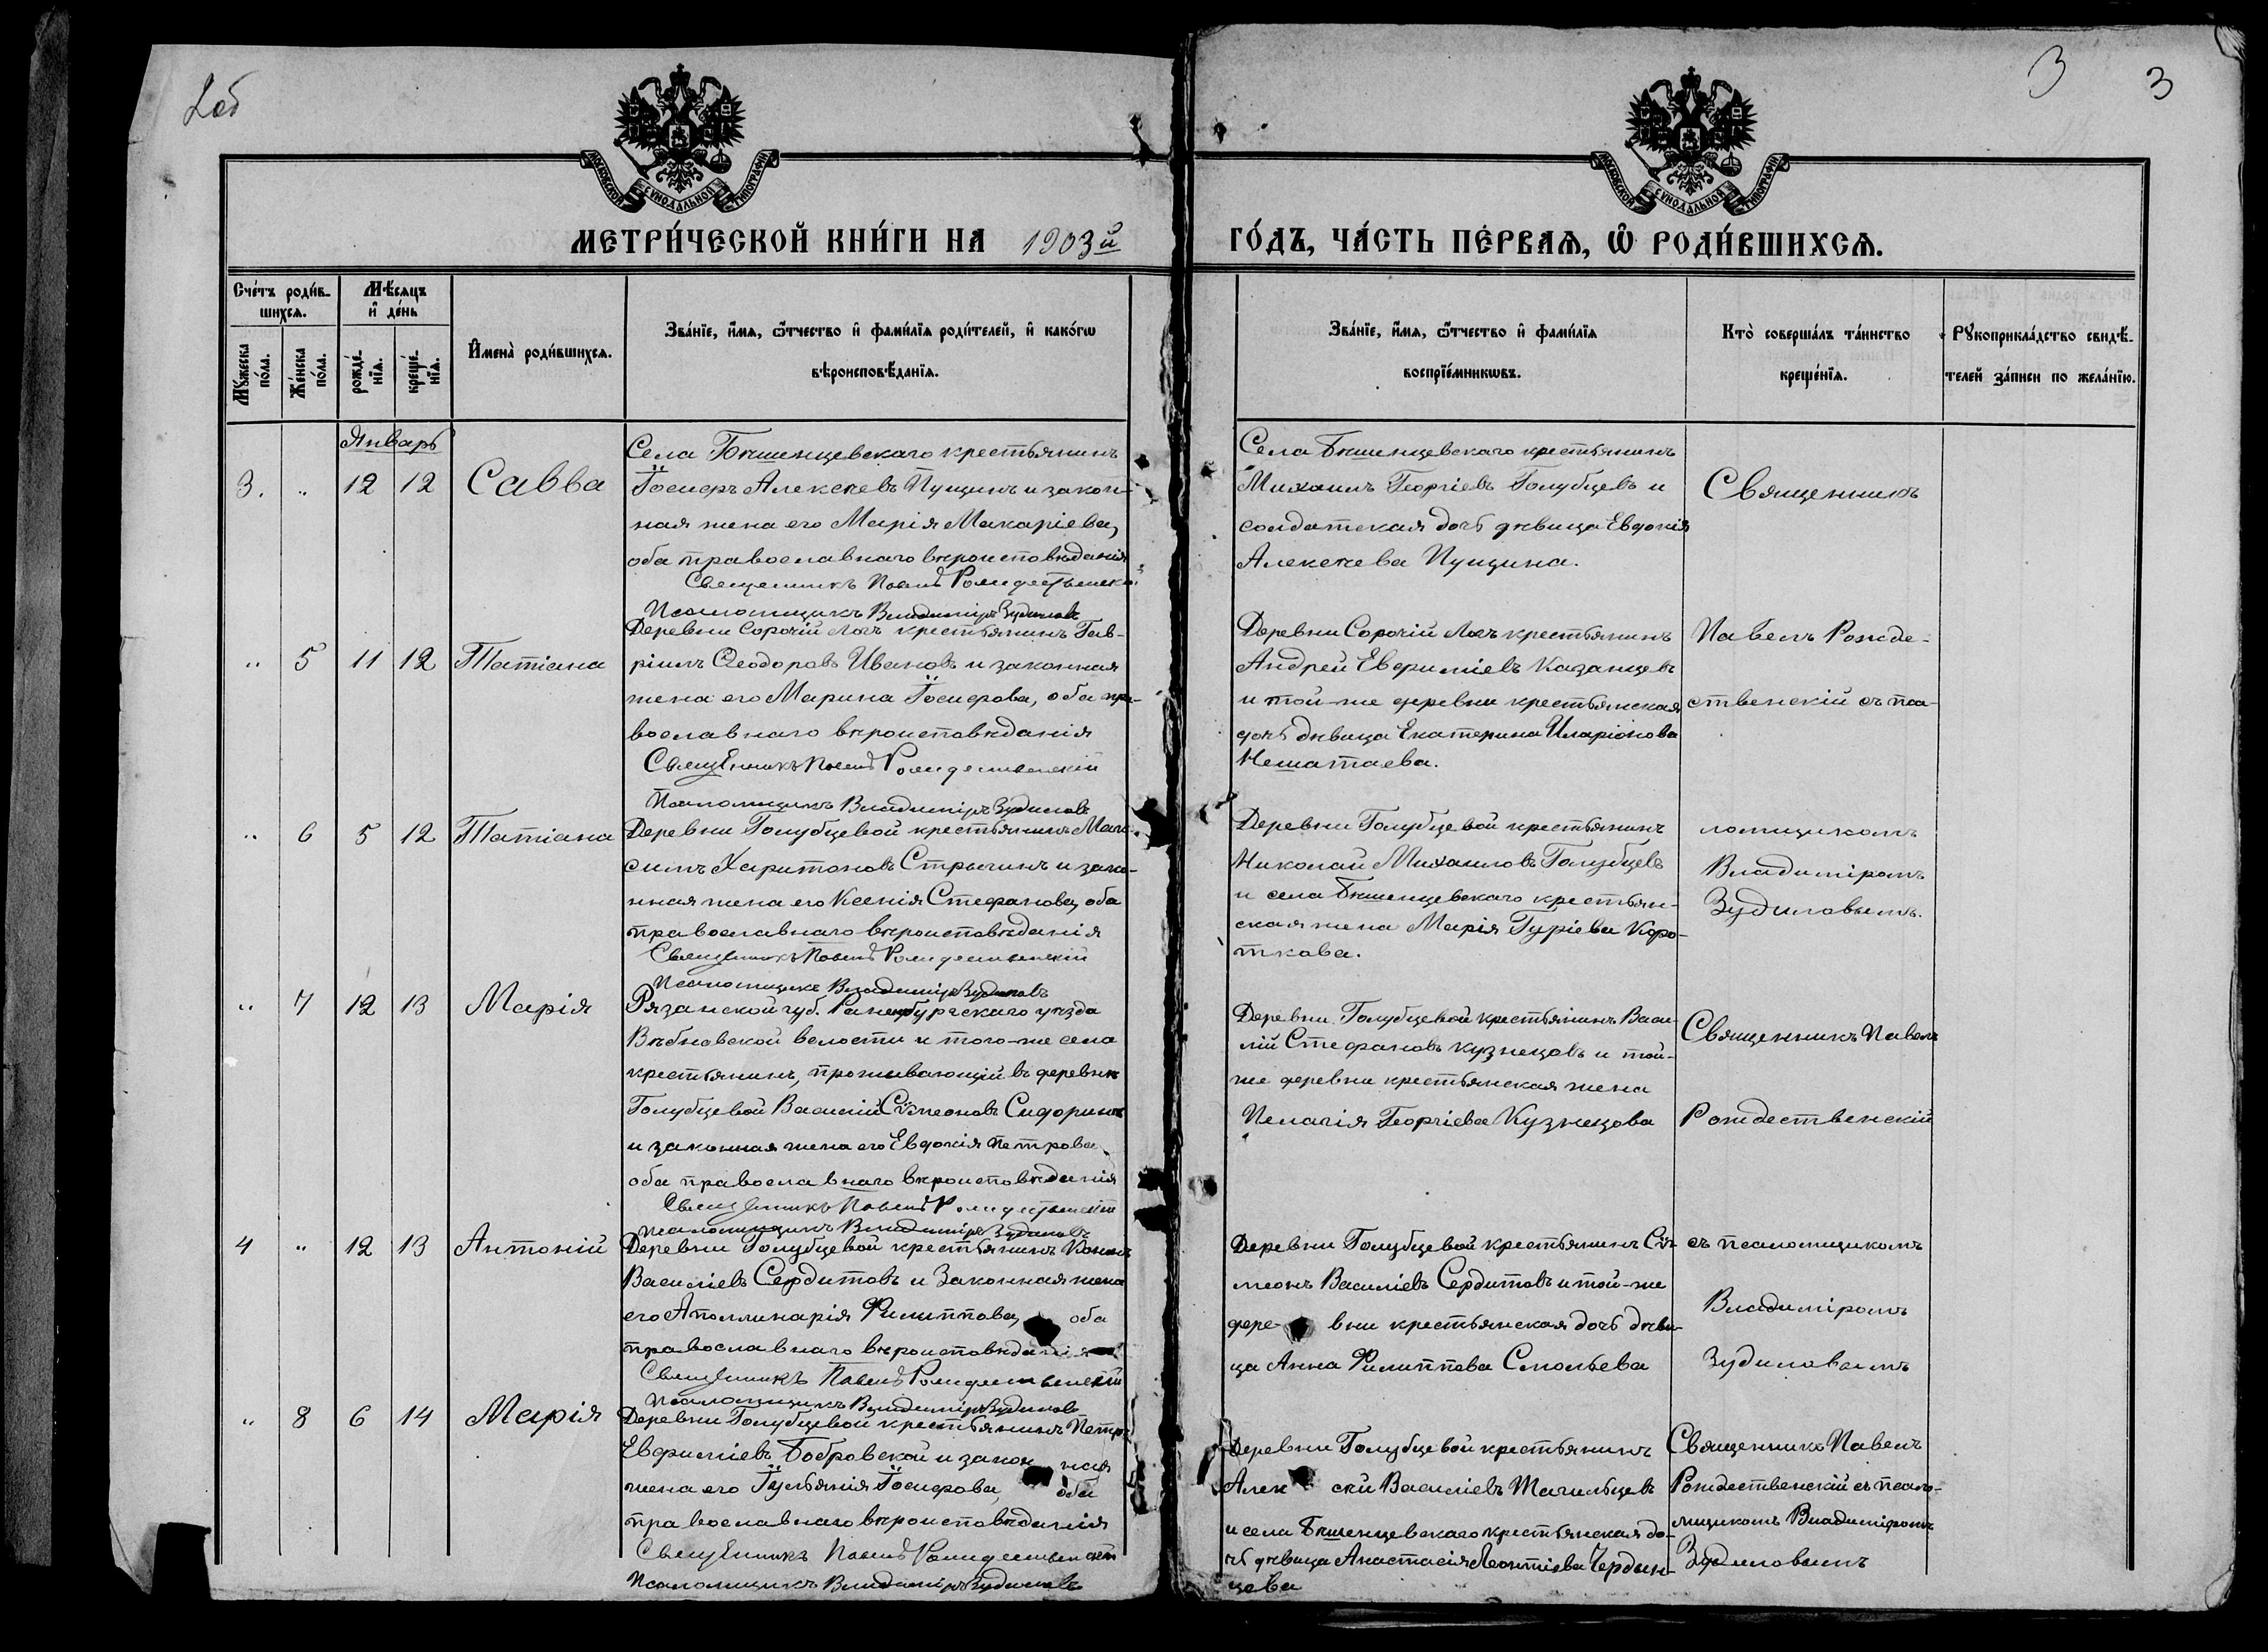 2об
3
3
МОСКОВСКОЙ СѴНОДАЛЬНОЙ ТИПОГРАФІИ
МОСКОВСКОЙ СѴНОДАЛЬНОЙ ТИПОГРАФІИ
МЕТРИ́ЧЕСКОЙ КНИ́ГИ НА 1903й
ГО́ДЪ, ЧА́СТЬ ПЕ́РВАѦ, Ѡ҆ РОДИ́ВШИХСѦ.
Сче́тъ роди́в-
шихсѧ.
Мꙋ́жеска по́ла.
Же́нска по́ла.
Мѣ́сѧцъ
и҆ де́нь
рожде́-
нїѧ.
креще́-
нїѧ.
И҆мена̀ роди́вшихсѧ.
Зва́нїе, и҆́мѧ, ѻ҆́тчество и҆ фами́лїѧ роди́телей, и҆ како́гѡ
вѣроисповѣ́данїѧ.
Зва́нїе, и҆́мѧ, ѻ҆́тчество и҆ фами́лїѧ
воспрїе́мникѡвъ.
Кто̀ соверша́лъ та́инство
креще́нїѧ.
Рꙋкоприкла́дство свидѣ́-
телей за́писи по жела́нїю.
Январь
3. " 12 12 Савва
Села Бѣшенцевскаго крестьянинъ
Іосифъ Алексѣевъ Пущинъ и закон-
ная жена его Марія Макаріева,
оба православнаго вѣроисповѣданія
Священникъ Павелъ Рождественскій
Псаломщикъ Владиміръ Зудиловъ
Села Бѣшенцевскаго крестьянинъ
Михаилъ Георгіевъ Голубцевъ и
солдатская дочь дѣвица Евдокія
Алексѣева Пущина.
Священникъ
" 5 11 12 Татіана
Деревни Сорочій Логъ крестьянинъ Гав-
ріилъ Ѳеодоровъ Ивановъ и законная
жена его Марина Іосифова, оба пра-
вославнаго вѣроисповѣданія
Священникъ Павелъ Рождественскій
Псаломщикъ Владиміръ Зудиловъ
Деревни Сорочій Логъ крестьянинъ
Андрей Евфиміевъ Казанцевъ
и той-же деревни крестьянская
дочь дѣвица Екатерина Иларіонова
Нешатаева.
Павелъ Рожде-
ственскій съ пса-
" 6 5 12 Татіана
Деревни Голубцевой крестьянинъ Мак-
симъ Харитоновъ Стрыгинъ и зако-
нная жена его Ксенія Стефанова, оба
православнаго вѣроисповѣданія
Священникъ Павелъ Рождественскій
Псаломщикъ Владиміръ Зудиловъ
Деревни Голубцевой крестьянинъ
Николай Михаиловъ Голубцевъ
и села Бѣшенцевскаго крестьян-
ская жена Марія Гуріева Коро-
ткова.
ломщикомъ
Владиміромъ
Зудиловымъ.
" 7 12 13 Марія
Рязанской губ. Раненбургскаго уѣзда
волости и того-же села
крестьянинъ, проживающій въ деревнѣ
Голубцевой Василій Сѵмеоновъ Сидоринъ
и законная жена его Евдокія Петрова,
оба православнаго вѣроисповѣданія
Священникъ Павелъ Рождественскій
Псаломщикъ Владиміръ Зудиловъ
Деревни Голубцевой крестьянинъ Васи-
лій Стефановъ Кузнецовъ и той-
же деревни крестьянская жена
Пелагія Георгіева Кузнецова
Священникъ Павелъ
Рождественскій
4 " 12 13 Антоній
Деревни Голубцевой крестьянинъ Кононъ
Василіевъ Сердитовъ и Законная жена
его Аполлинарія Филиппова, оба
православнаго вѣроисповѣданія
Священникъ Павелъ Рождественскій
Псаломщикъ Владиміръ Зудиловъ
Деревни Голубцевой крестьянинъ Сѵ-
меонъ Василіевъ Сердитовъ и той-же
дере- вни крестьянская дочь дѣви-
ца Анна Филиппова Смольева
съ псаломщикомъ
Владиміромъ
Зудиловымъ
" 8 6 14 Марія
Деревни Голубцевой крестьянинъ Петръ
Евфиміевъ Бобровской и закон ная
жена его Іульянія Іосифова, оба
православнаго вѣроисповѣданія
Священникъ Павелъ Рождественскій
Псаломщикъ Владиміръ Зудиловъ
Деревни Голубцевой крестьянинъ
Алек сѣй Василіевъ Тагильцевъ
и села Бѣшенцевскаго крестьянская до-
чь дѣвица Анастасія Леонтіева Чердын-
цева
Священникъ Павелъ
Рождественскій съ псало-
мщикомъ Владиміромъ
Зудиловымъ